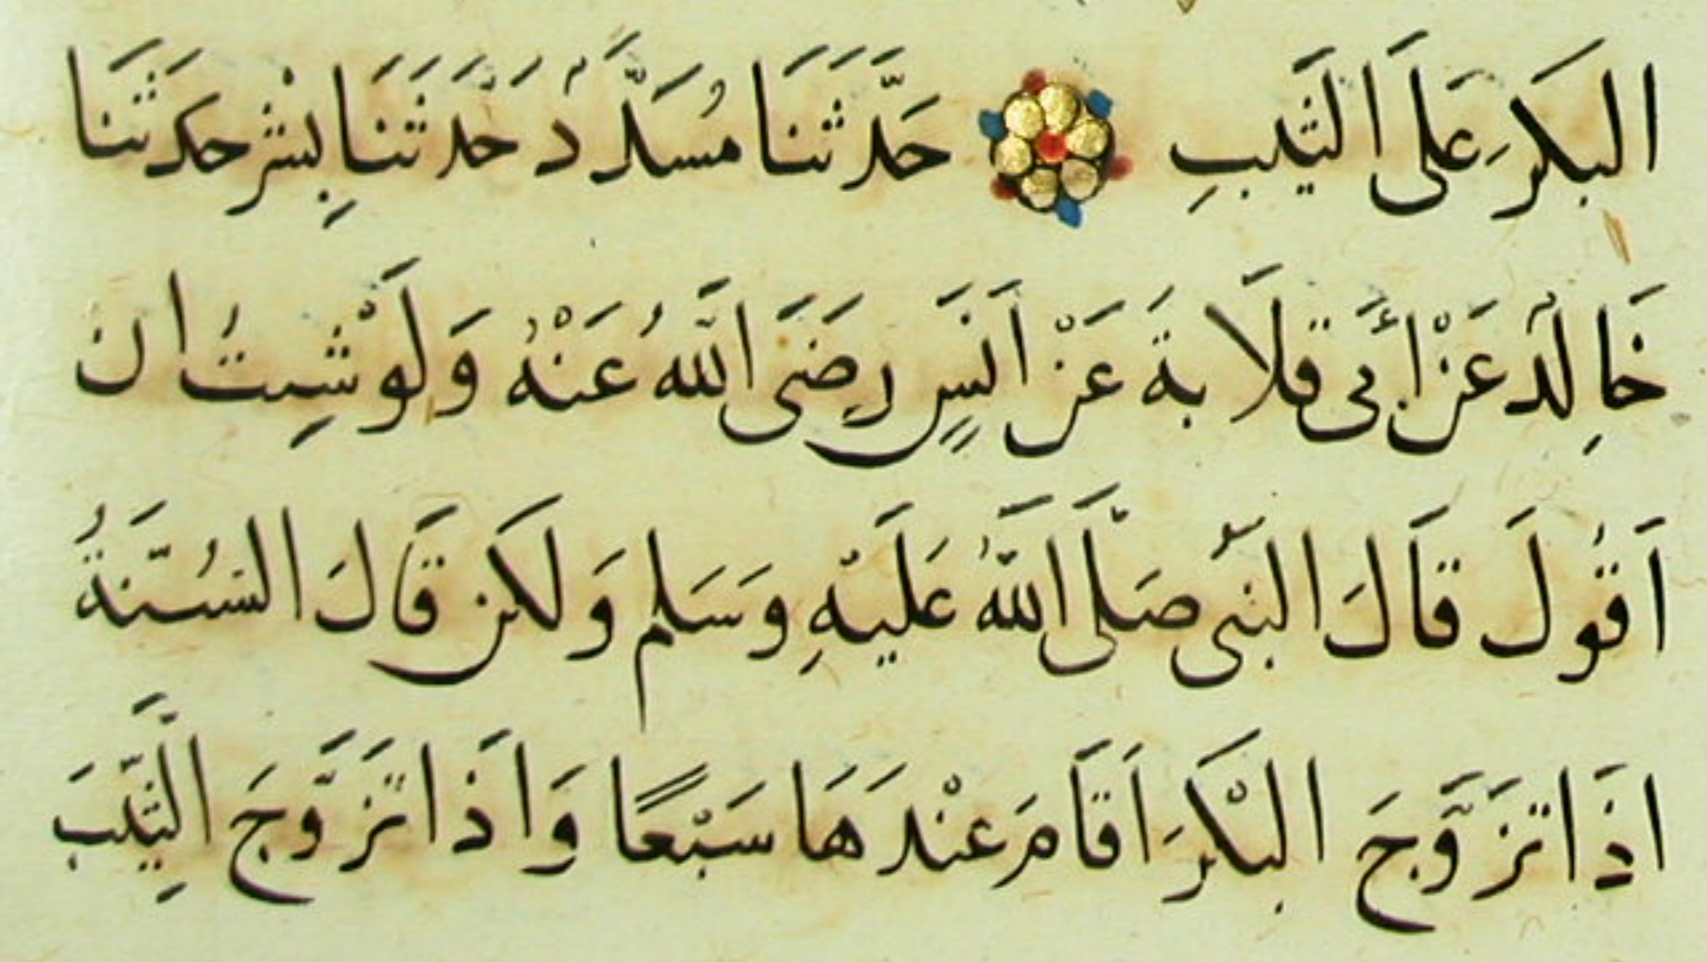 البكرَ عَلَى الثَّيِّبِ حَدَّثَنَا مُسَدَّدٌ حَدَّثَنَا بِشْر حَدَثَنَا
خَالِدٌ عَنْ أَبَى قلَابةَ عَنْ اَنَسٍ رَضِىَ اللَّهُ عَنْهُ وَلَوْ شِئتُ ان
اَقُولَ قَالَ النبىُّ صَلَّى اللَّهُ عَلَيهِ وَسَلم وَلَكن قَالَ السُنَّةُ
اذَا تَزَوَّجَ البْكَرَ اَقَامَ عنْدَهَا سَبْعًا وَاذَا تَزَوَّجَ الثَّيِّبَ